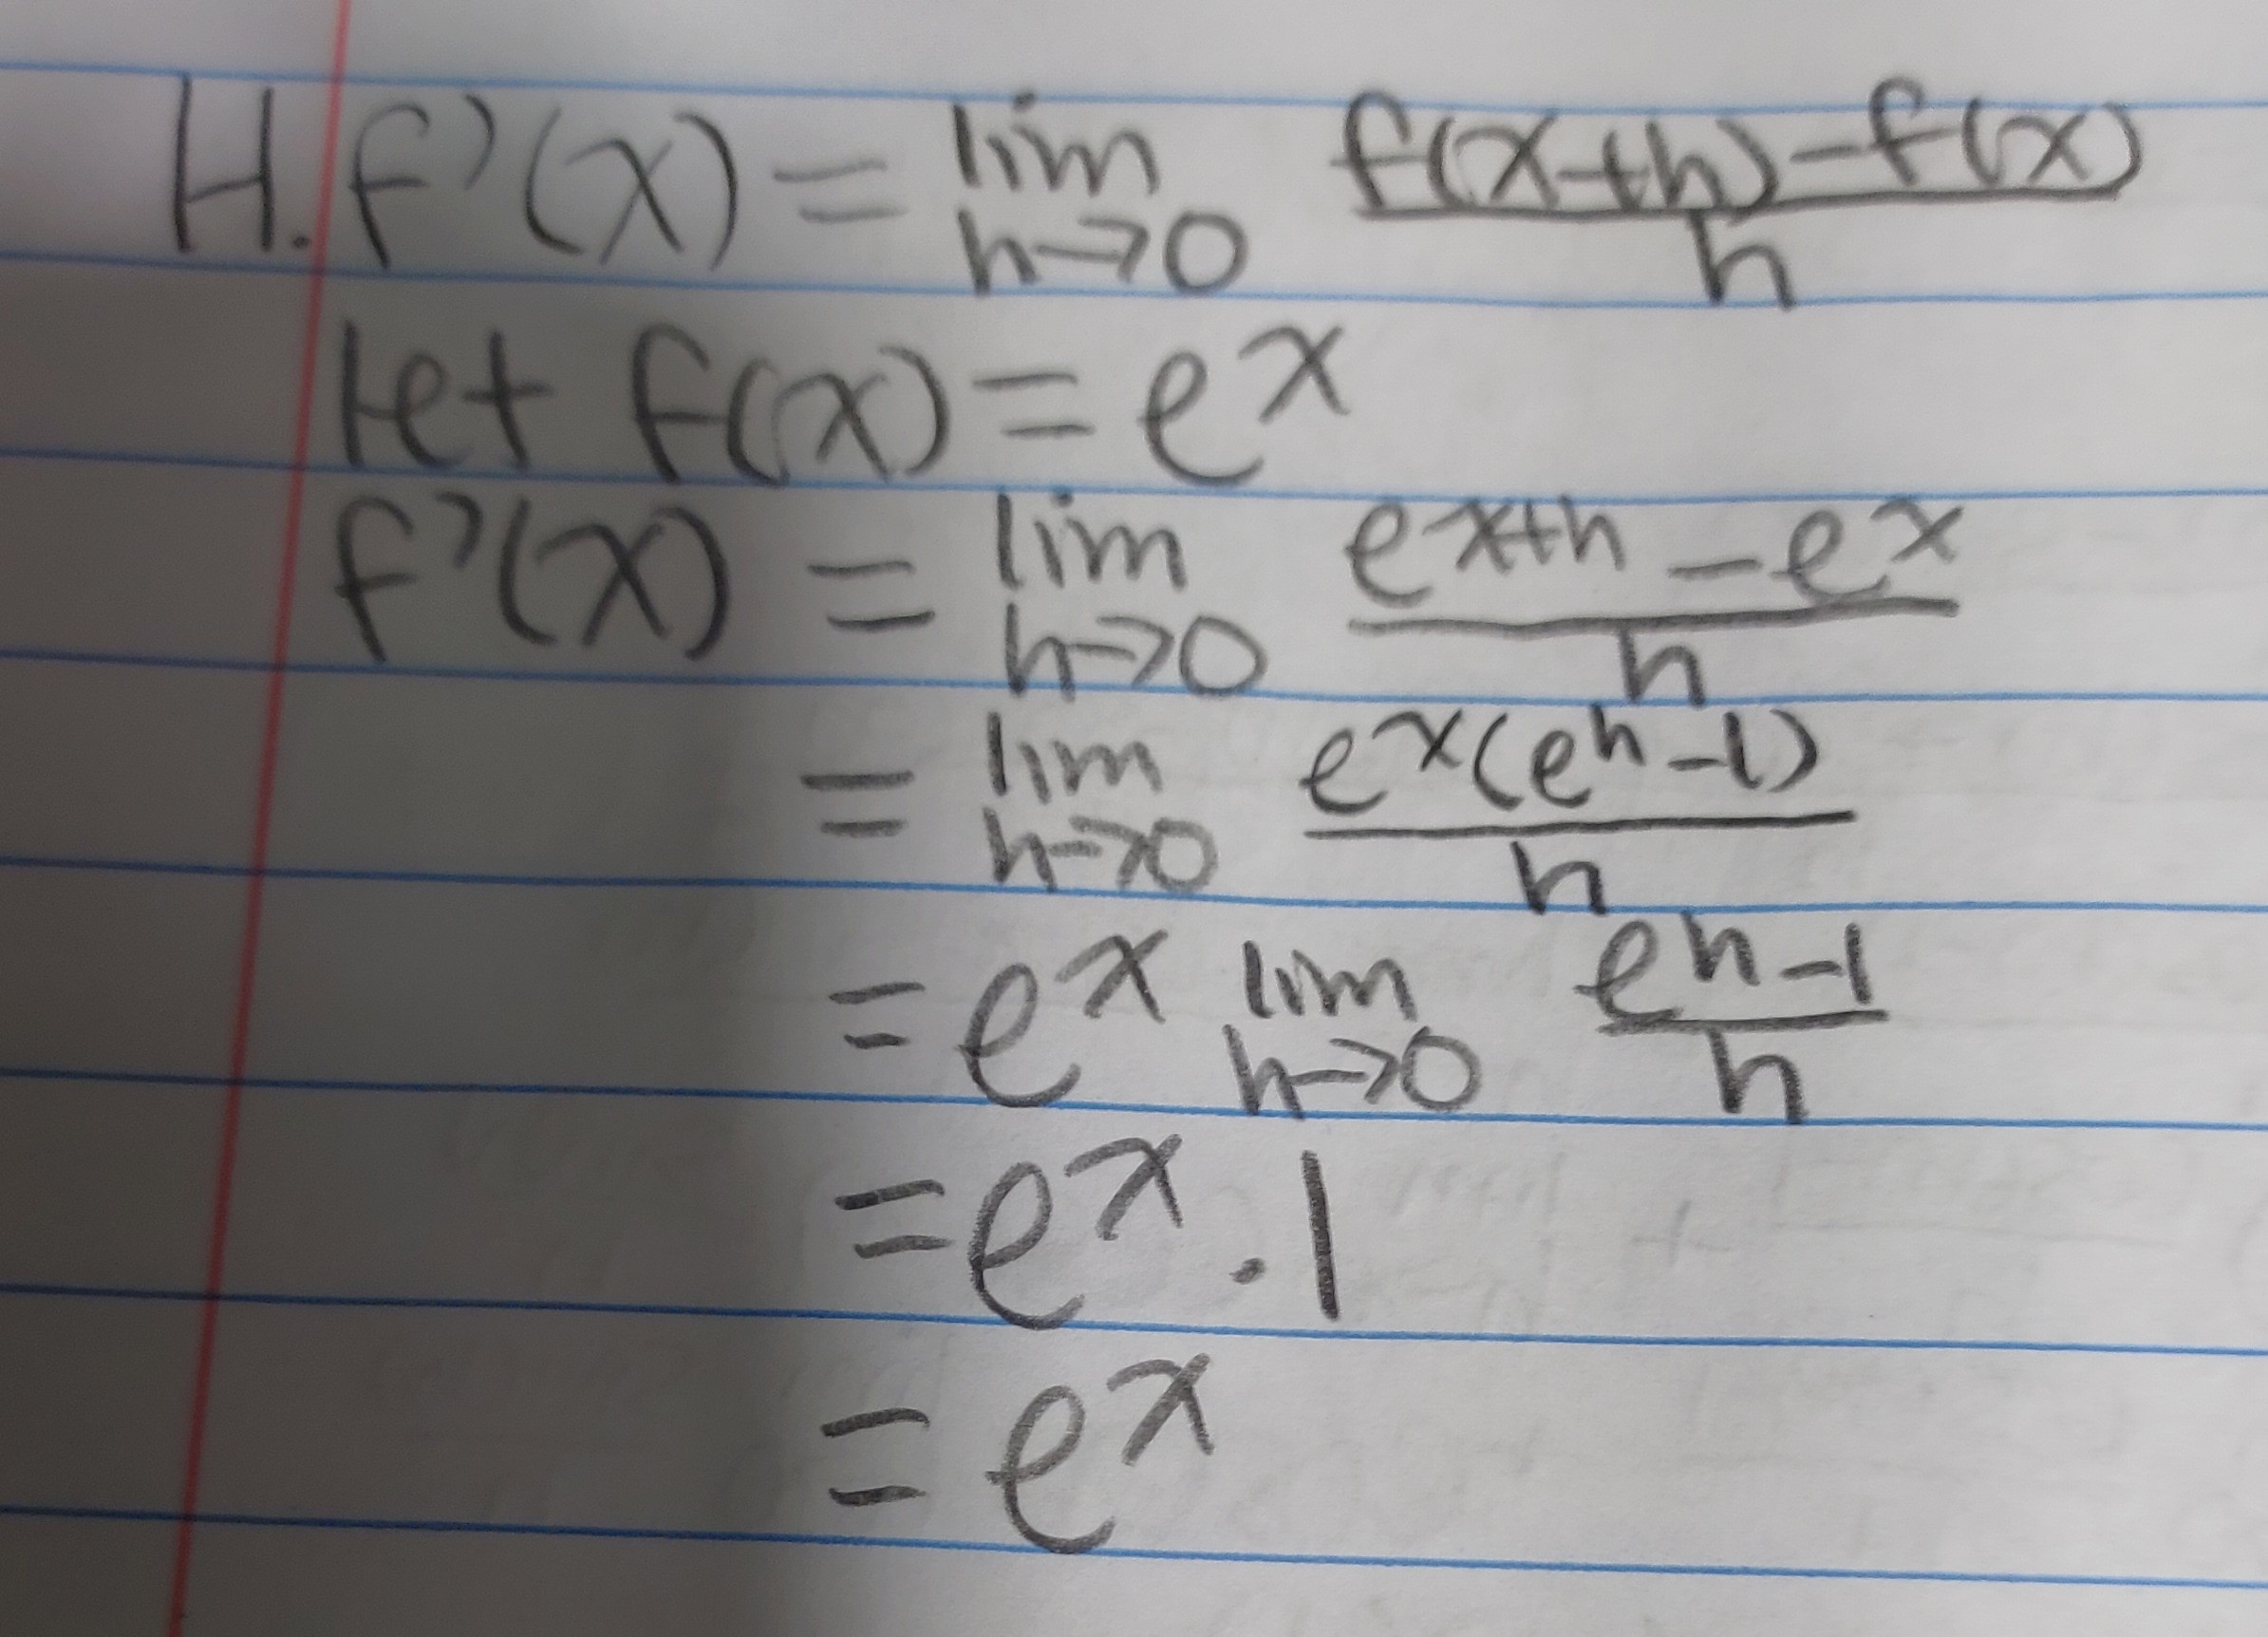 H. f'(x) = lim h→0 (f(x+h)-f(x))/h
Let f(x) = e^x
f'(x) = lim h→0 (e^(x+h) - e^x)/h
= lim h→0 (e^x(e^h-1))/h
= e^x lim h→0 (e^h-1)/h
= e^x · 1
= e^x